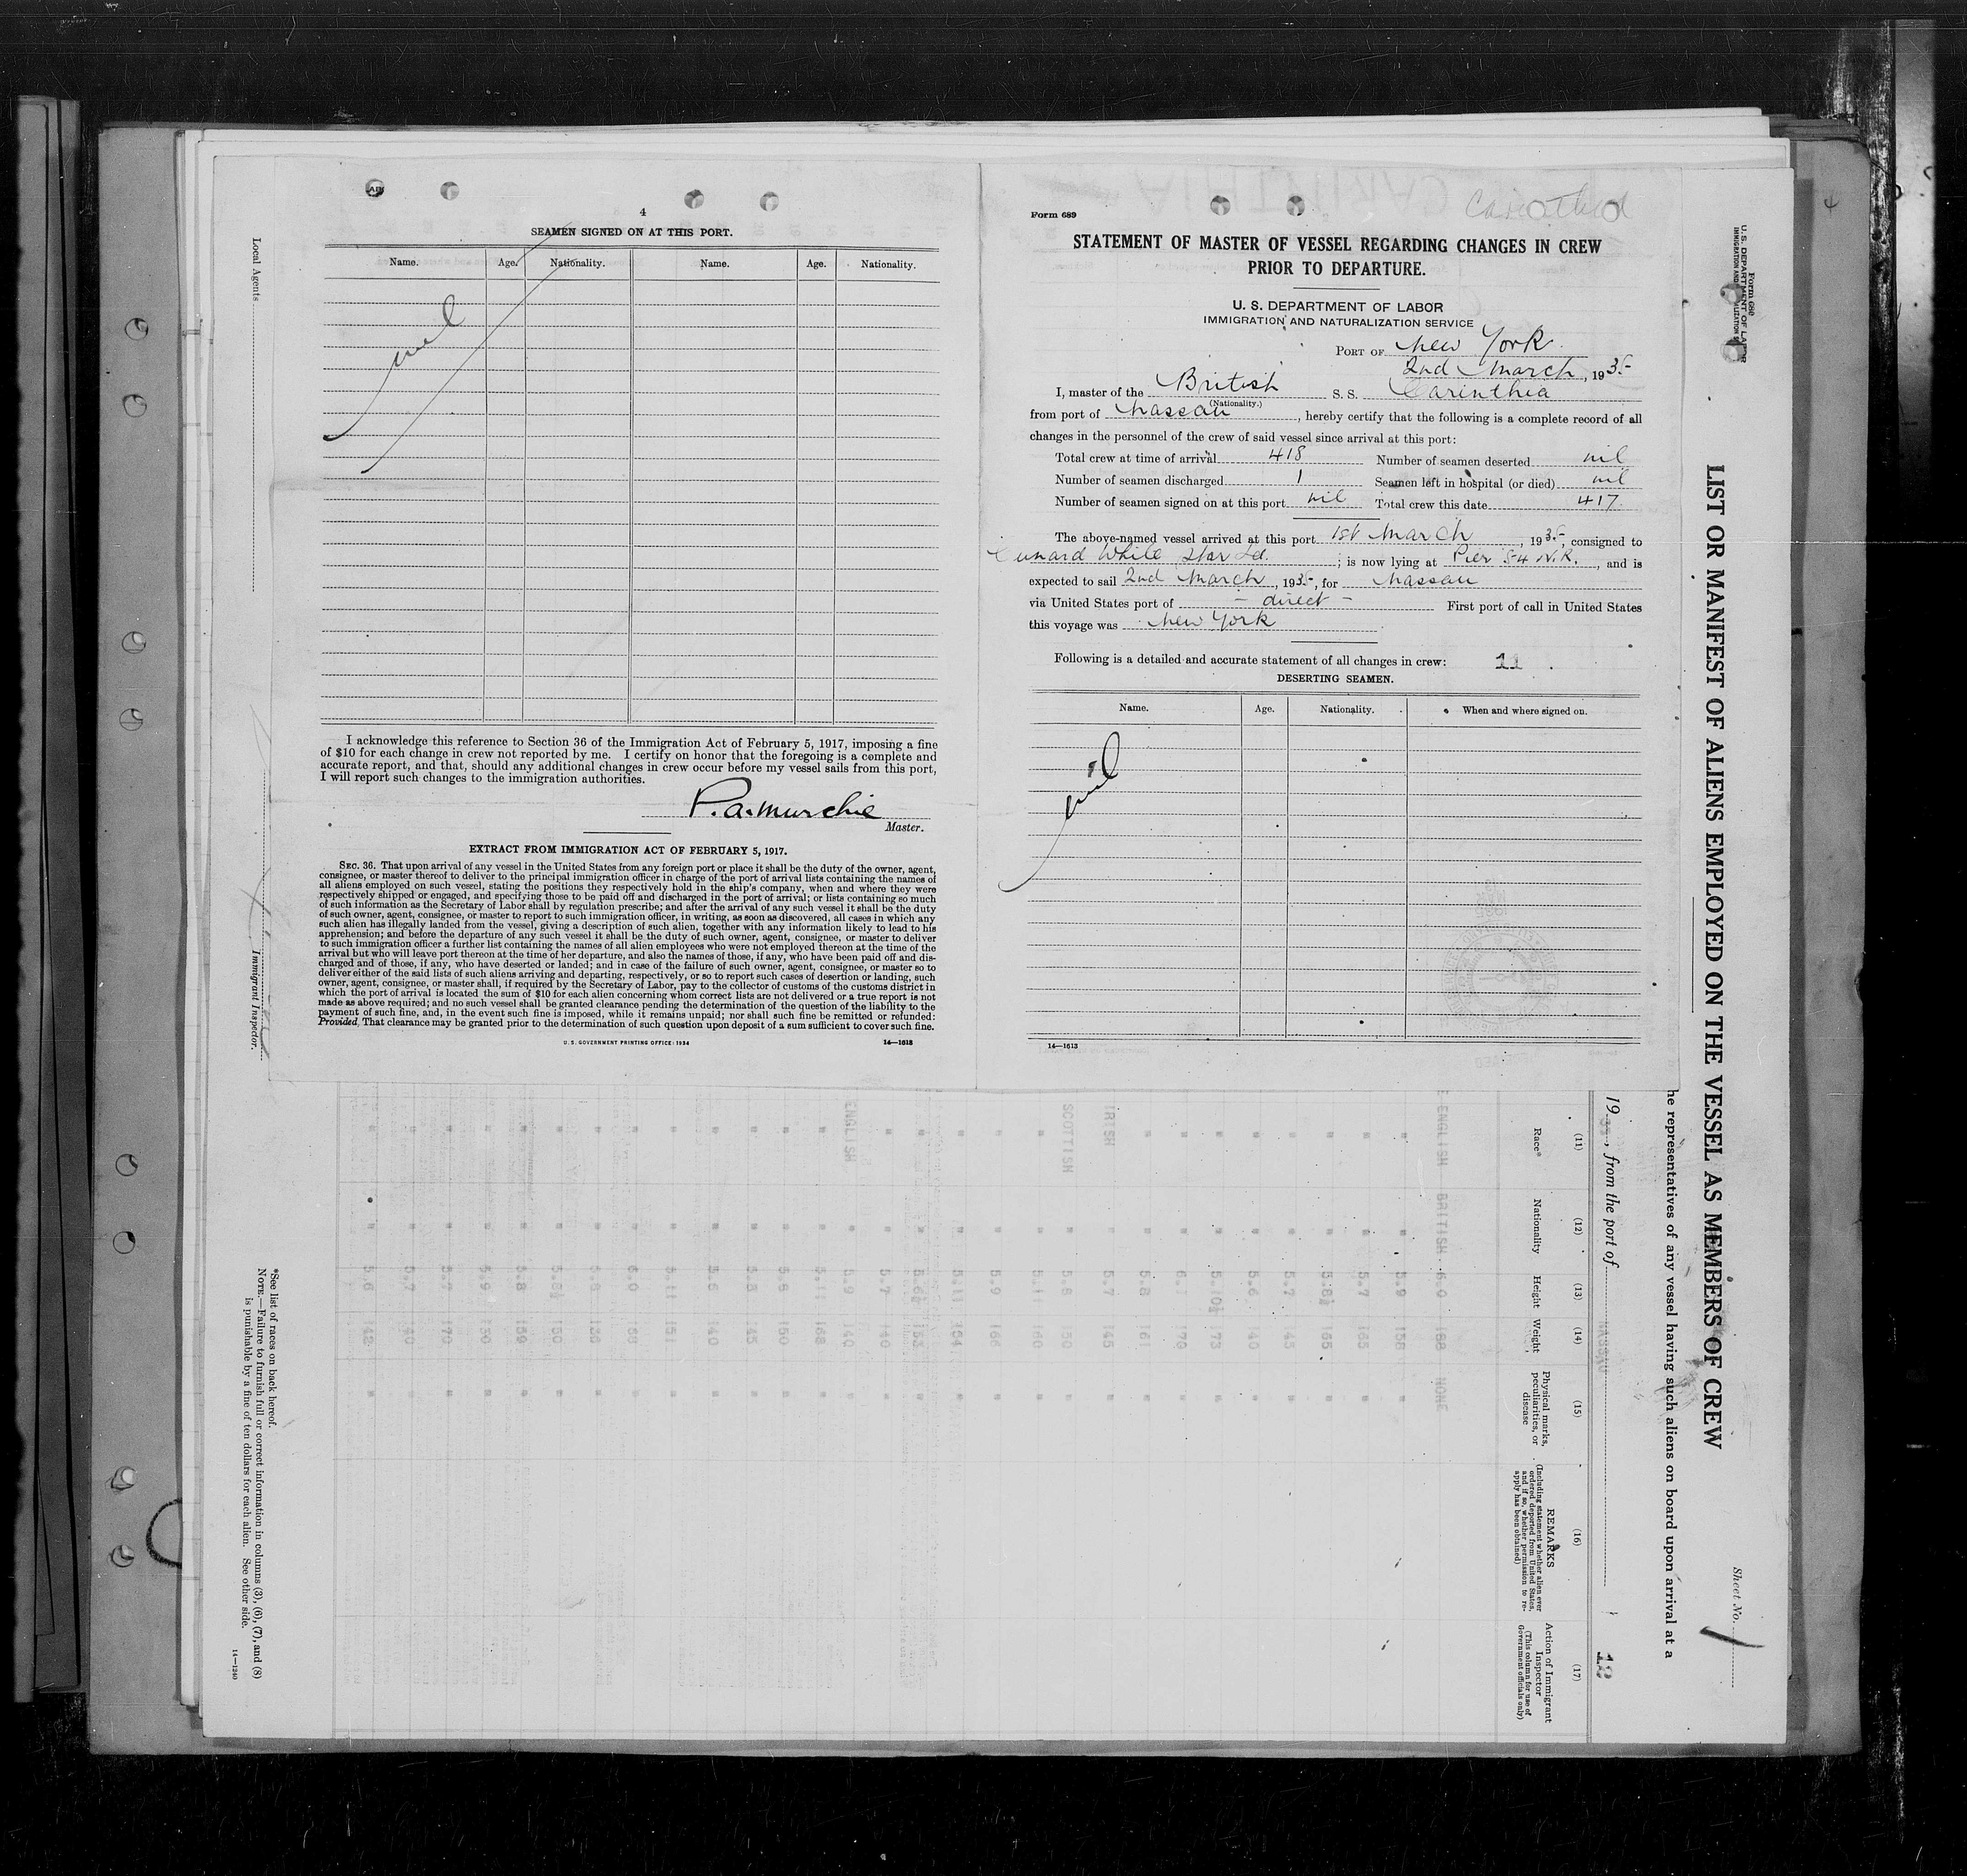 4
SEAMEN SIGNED ON AT THIS PORT.
Name. Age. Nationality. Name. Age. Nationality.
nil
I acknowledge this reference to Section 36 of the Immigration Act of February 5, 1917, imposing a fine
of $10 for each change in crew not reported by me. I certify on honor that the foregoing is a complete and
accurate report, and that, should any additional changes in crew occur before my vessel sails from this port,
I will report such changes to the immigration authorities.
P. A. Murchie
Master.
EXTRACT FROM IMMIGRATION ACT OF FEBRUARY 5, 1917.
SEC. 36. That upon arrival of any vessel in the United States from any foreign port or place it shall be the duty of the owner, agent,
consignee, or master thereof to deliver to the principal immigration officer in charge of the port of arrival lists containing the names of
all aliens employed on such vessel, stating the positions they respectively hold in the ship's company, when and where they were
respectively shipped or engaged, and specifying those to be paid off and discharged in the port of arrival; or lists containing so much
of such information as the Secretary of Labor shall by regulation prescribe; and after the arrival of any such vessel it shall be the duty
of such owner, agent, consignee, or master to report to such immigration officer, in writing, as soon as discovered, all cases in which any
such alien has illegally landed from the vessel, giving a description of such alien, together with any information likely to lead to his
apprehension; and before the departure of any such vessel it shall be the duty of such owner, agent, consignee, or master to deliver
to such immigration officer a further list containing the names of all alien employees who were not employed thereon at the time of the
arrival but who will leave port thereon at the time of her departure, and also the names of those, if any, who have been paid off and dis-
charged and of those, if any, who have deserted or landed; and in case of the failure of such owner, agent, consignee, or master so to
deliver either of the said lists of such aliens arriving and departing, respectively, or so to report such cases of desertion or landing, such
owner, agent, consignee, or master shall, if required by the Secretary of Labor, pay to the collector of customs of the customs district in
which the port of arrival is located the sum of $10 for each alien concerning whom correct lists are not delivered or a true report is not
made as above required; and no such vessel shall be granted clearance pending the determination of the question of the liability to the
payment of such fine, and, in the event such fine is imposed, while it remains unpaid; nor shall such fine be remitted or refunded:
Provided, That clearance may be granted prior to the determination of such question upon deposit of a sum sufficient to cover such fine.
U. S. GOVERNMENT PRINTING OFFICE: 1934 14—1613
Form 689
STATEMENT OF MASTER OF VESSEL REGARDING CHANGES IN CREW
PRIOR TO DEPARTURE.
U. S. DEPARTMENT OF LABOR
IMMIGRATION AND NATURALIZATION SERVICE
PORT OF New York
2nd March, 1935
I, master of the British S. S. Carinthia
(Nationality.)
from port of Nassau, hereby certify that the following is a complete record of all
changes in the personnel of the crew of said vessel since arrival at this port:
Total crew at time of arrival 418 Number of seamen deserted nil
Number of seamen discharged 1 Seamen left in hospital (or died) nil
Number of seamen signed on at this port nil Total crew this date 417
The above-named vessel arrived at this port 1st March, 1935, consigned to
Cunard White Star Ld.; is now lying at Pier 54 N.R., and is
expected to sail 2nd March, 1935, for Nassau
via United States port of - direct - First port of call in United States
this voyage was New York
Following is a detailed and accurate statement of all changes in crew: 11
DESERTING SEAMEN.
Name. Age. Nationality. When and where signed on.
nil
14—1613
4
Form 680
U. S. DEPARTMENT OF LABOR
LIST OR MANIFEST OF ALIENS EMPLOYED ON THE VESSEL AS MEMBERS OF CREW
Sheet No. 1
he representatives of any vessel having such aliens on board upon arrival at a
19, from the port of NASSAU
18
(11) (12) (13) (14) (15) (16) (17)
Race* Nationality Height Weight Physical marks, peculiarities, or disease
REMARKS
(Including statement whether alien ever
ordered deported from United States,
and if so, whether permission to re-
apply has been obtained)
Action of Immigrant
Inspector
(This column for use of
Government officials only)
ENGLISH BRITISH 6.0 188 NONE
" " 5.9 158 "
" " 5.7 165 "
" " 5.8½ 165 "
" " 5.7 145 "
" " 5.6 140 "
" " 5.10½ 173 "
IRISH " 5.7 145 "
SCOTTISH " 5.8 150 "
" " 5.11 160 "
" " 5.9 166 "
ENGLISH " 5.9 140 "
*See list of races on back hereof.
NOTE.—Failure to furnish full or correct information in columns (3), (6), (7), and (8)
is punishable by a fine of ten dollars for each alien. See other side.
14—1240
Local Agents
Immigrant Inspector.